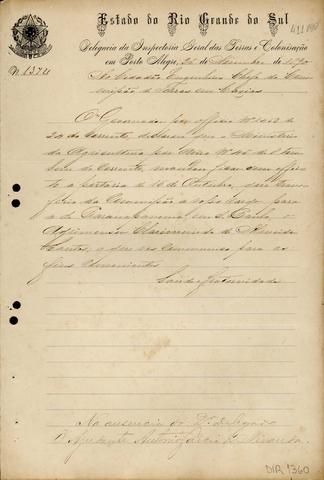 Estado do Rio Grande do Sul
Delegacia da Inspectoria Geral das Terras e Colonisação
em Porto Alegre, 26 de Novembro de 1890
N. 1374
Ao Cidadão Engenheiro Chefe da Com
missão de terras em Caxias
O Governador por officio Nº 1012 de
20 do corrente, disse o Ministerio
da Agricultura por
do corrente, mandou ficar sem effei
to a portaria de 16 de Outubro, que trans
feria da Commissão a vosso cargo para
a de Paranapanema, em S. Paulo, o
Agrimensor de Almeida
o que vos communico para os
fins convenientes.
Saude e fraternidade
Na ausencia do Dr. delegado
O Ajudante Antonio de Miranda
DIR 1360